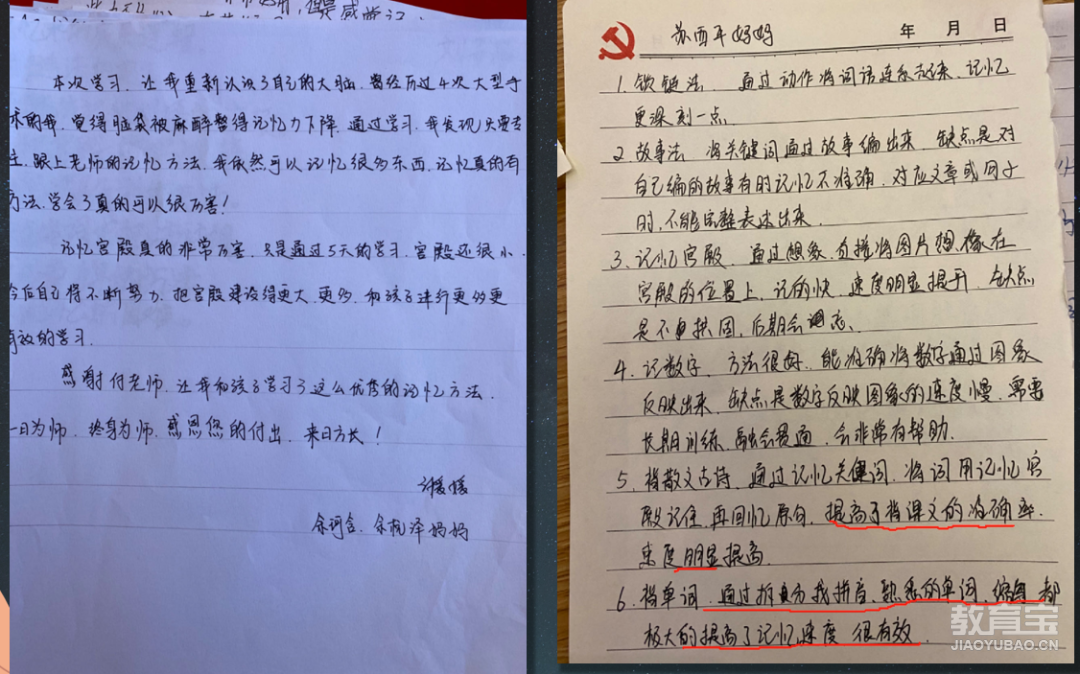 本次学习，让我重新认识了自己的大脑，曾经历过4次大型手
术的我，觉得脑袋被麻醉整得记忆力下降，通过学习，我发现只要专
注，跟上老师的记忆方法，我依然可以记忆很多东西，记忆真的有
方法，学会了真的可以很厉害！
记忆宫殿真的非常厉害，只是通过5天的学习，宫殿还很小，
今后自己得不断努力，把宫殿建设得更大、更多，和孩子进行更多更
有效的学习。
感谢付老师，让我和孩子学习了这么优秀的记忆方法。
一日为师，终身为师，感恩您的付出，来日方长！
余柯含、余 泽妈妈
苏西平妈妈
年 月 日
1、锁链法，通过动作将词语连系起来，记忆
更深刻一点。
2、故事法，将关键词通过故事编出来，缺点是对
自己编的故事有时记忆不准确，对应文章或句子
时，不能完整表述出来。
3、记忆宫殿，通过想象，直接将图片想像在
宫殿的位置上，记的快，速度明显提升，缺点
是不巩固，后期会遗忘、
4、记数字，方法很好，能准确将数字通过图象
反映出来，缺点是数字反映图象的速度慢，需要
长期训练，融会贯通，会非常有帮助。
5、背散文古诗，通过记忆关键词，将词用记忆宫
殿记住，再回忆原句，提高了背课文的准确率，
速度明显提高。
6、背单词，通过拆真方找拼音、熟悉的单词、编 都
极大的提高了记忆速度，很有效。
教育宝
JIAOYUBAO.CN